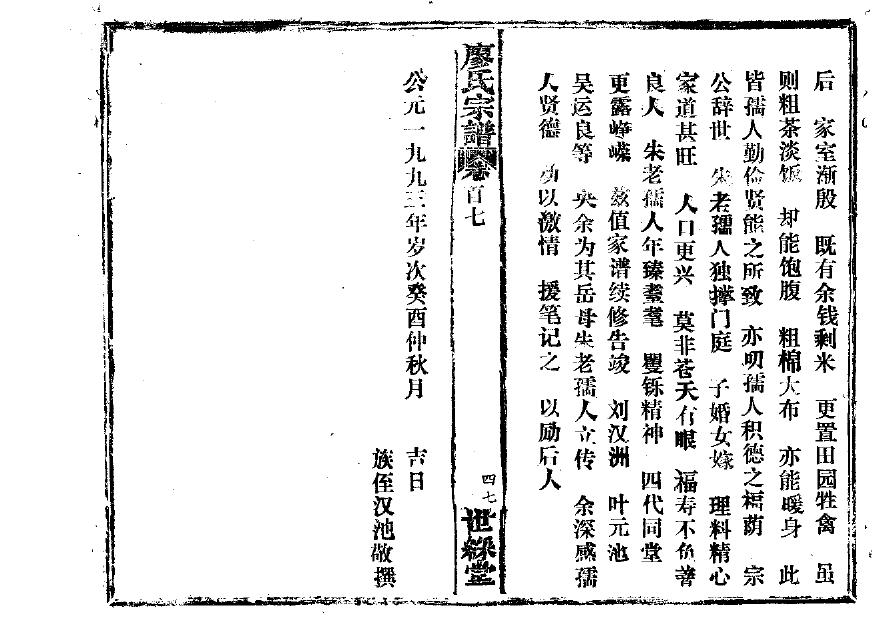 后 家室渐殷 既有余钱剩米 更置田园牲禽 虽
则粗茶淡饭 却能饱腹 粗棉大布 亦能暖身 此
皆孺人勤俭贤能之所致 亦明孺人积德之福荫 宗
公辞世 朱老孺人独撑门庭 子婚女嫁 理料精心
家道甚旺 人口更兴 莫非苍天有眼 福寿不负善
良人 朱老孺人年臻耋耄 矍铄精神 四代同堂
更露峥嵘 兹值家谱续修告竣 刘汉洲 叶元池
吴运良等 央余为其岳母朱老孺人立传 余深感孺
人贤德 动以激情 援笔记之 以励后人
廖氏宗譜 卷首七 四七 世綵堂
公元一九九三年岁次癸酉仲秋月 吉日
族侄汉池敬撰